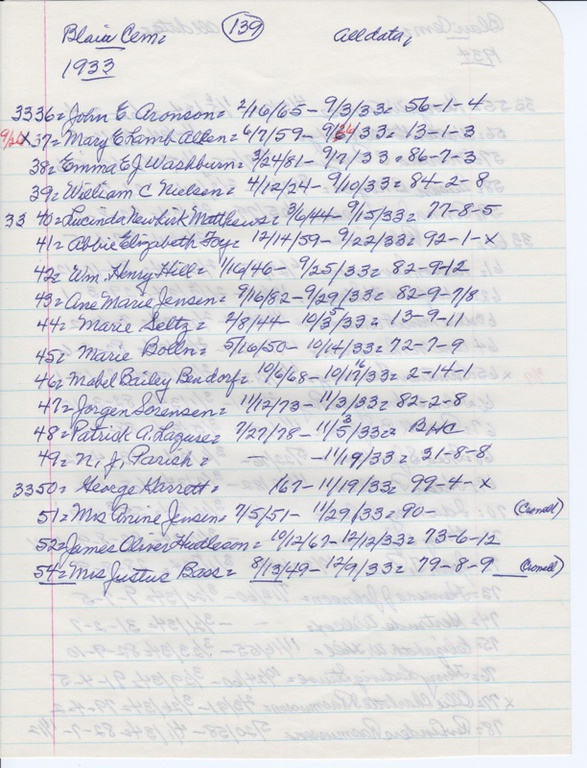 Blair Cem. 139 All data,
1933
3336= John E. Aronson= 2/16/65 - 9/3/33= 56-1-4
9/26 X 37= Mary E Lamb Allen= 6/7/59 - 9/26/33= 13-1-3
38= Emma E J Washburn= 3/24/81 - 9/7/33= 86-7-3
39= William C Nielsen= 4/12/24 - 9/10/33= 84-2-8
33 40= Lucinda Newkirk Matthews= 3/6/44 - 9/15/33= 77-8-5
41= Abbie Elizabeth Foy= 12/14/59 - 9/22/33= 92-1-x
42= Wm. Henry Hill= 1/16/46 - 9/25/33= 82-9-12
43= Ane Marie Jensen= 9/16/82 - 9/29/33= 82-9-7/8
44= Marie Seltz= 2/8/44 - 10/3/33= 13-9-11
45= Marie Bolln= 5/16/50 - 10/14/33= 72-7-9
46= Mabel Bailey Bendorf= 10/6/68 - 10/16/33= 2-14-1
47= Jorgen Sorensen= 11/12/73 - 11/3/33= 82-2-8
48= Patrick A. 7/27/78 - 11/5/33= BHC
49= N, J, Parish= - - 11/19/33= 31-8-8
3350= George Garrett= /67 - 11/19/33= 99-4-x
51= Mrs Jensen= 7/5/51 - 11/29/33= 90- (Crowell)
52= James Oliver Hudleson= 10/12/67 - 12/12/33= 73-6-12
54= Mrs Justus Bass= 8/13/49 - 12/9/33= 79-8-9 (Crowell)